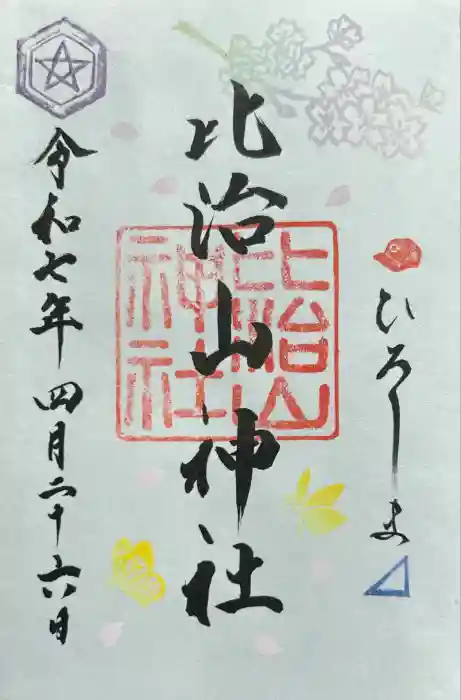 ひろしま
比治山神社
比治山
神社
令和七年 四月二十六日